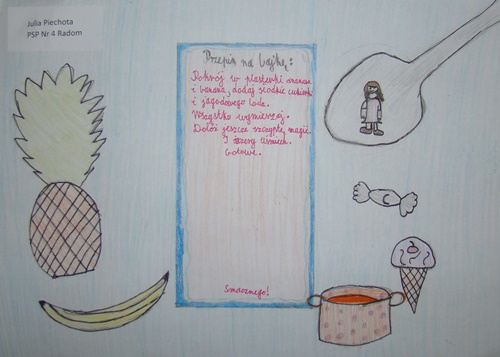 Julia Piechota
PSP Nr 4 Radom
Przepis na bajkę:
Pokrój w plasterki ananasa
i banana, dodaj słodkie cukierki
i jagodowego loda.
Wszystko wymieszaj.
Dołóż jeszcze szczyptę magii.
I szczery uśmiech.
Gotowe.
Smacznego!